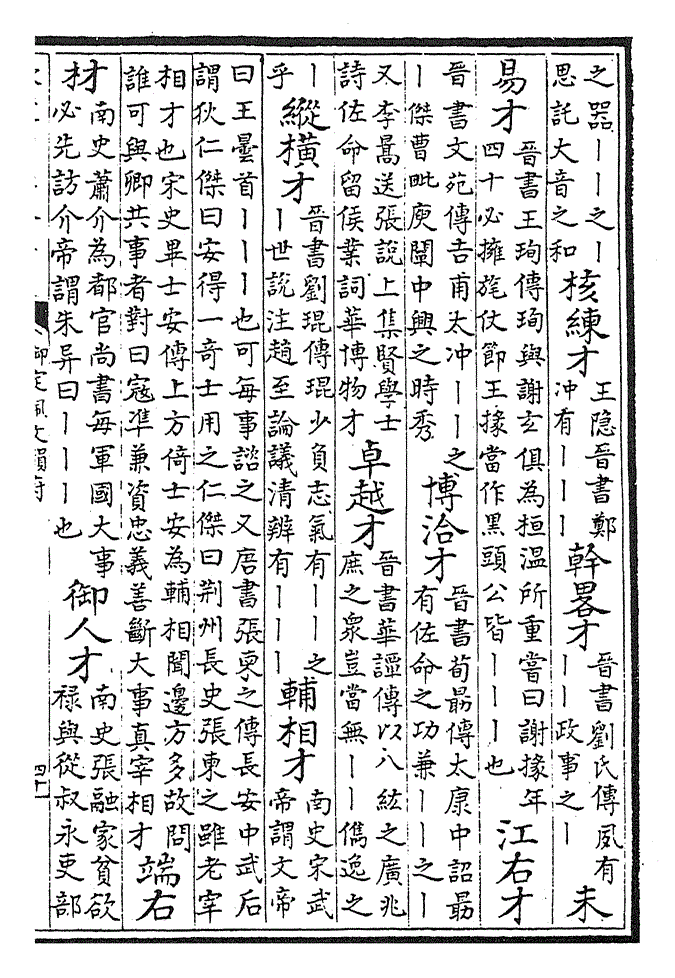 之器丨丨之丨思託大音之和 核練才 王隐晉書鄭冲有丨丨丨 幹畧才 晉書劉氏傳夙有丨丨政事之丨 未
易才 晉書王珣傳珣與謝玄俱為桓温所重嘗曰謝掾年四十必擁旄仗節王掾當作黑頭公皆丨丨丨也 江右才
晉書文苑傳吉甫太冲丨丨之丨傑曹毗庾闡中興之時秀 博洽才 晉書荀勗傳太康中詔勗有佐命之功兼丨丨之丨
又李暠送張說上集賢學士詩佐命留侯業詞華博物才 卓越才 晉書華譚傳以八紘之廣兆庶之衆豈當無丨丨儁逸之
丨乎 縱橫才 晉書劉琨傳琨少負志氣有丨丨之丨世說注趙至論議清辨有丨丨丨 輔相才 南史宋武帝謂文帝
曰王曇首丨丨丨也可每事諮之又唐書張柬之傳長安中武后謂狄仁傑曰安得一奇士用之仁傑曰荆州長史張柬之雖老宰
相才也宋史畢士安傳上方倚士安為輔相聞邊方多故問誰可與卿共事者對曰寇準兼資忠義善斷大事真宰相才 端右
材 南史蕭介為都官尚書每軍國大事必先訪介帝謂朱异曰丨丨丨也 御人才 南史張融家貧欲禄與從叔永吏部
御定佩文韻府